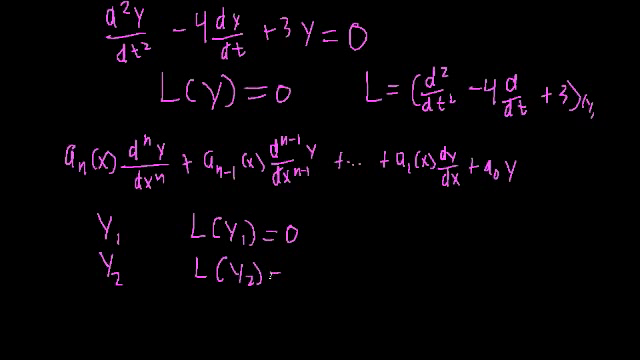 d²y/dt² - 4 dy/dt + 3y = 0
L(y) = 0 L = (d²/dt² - 4 d/dt + 3)(y)
aₙ(x) dⁿy/dxⁿ + aₙ₋₁(x) dⁿ⁻¹y/dxⁿ⁻¹ + ... + a₁(x) dy/dx + a₀ y
y₁ L(y₁) = 0
y₂ L(y₂) -